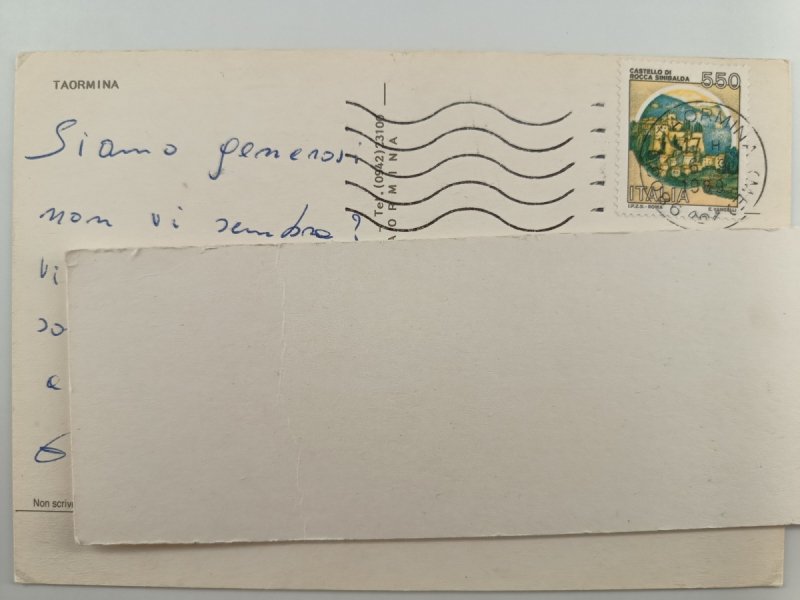 TAORMINA
Siamo generosi
non vi sembra?
Vi
so
a
Non scriv
Tel. (0942) 23100
TAORMINA
CASTELLO DI
ROCCA SINIBALDA
550
ITALIA
I.P.Z.S. - ROMA
TAORMINA (ME)
17
1989